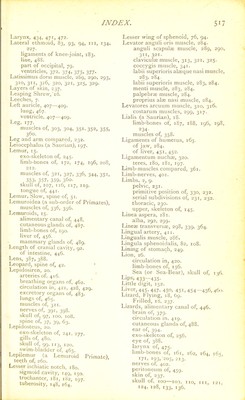 INDEX.
517
Larynx, 454, 471, 472.
Lateral ethmoid, 83, 93, 94, 112, 134, 197.
ligaments of knee-joint, 183.
line, 488.
part of occipital, 79.
ventricles, 372, 374, 375, 377.
Latissimus dorsi muscle, 289, 290, 293, 310, 311, 316, 320, 321, 325, 329.
Layers of skin, 237.
Leaping Shrew, 16.
Leeches, 5.
Left auricle, 407—409.
lung, 467.
ventricle, 407—409.
Leg, 177.
muscles of, 309, 304, 351, 352, 356, 360.
Leg and arm compared, 232.
Leiocephalus (a Saurian), 197.
Lemur, 13.
exo-skeleton of, 243.
limb-bones of, 171, 174, 196, 208, 212.
muscles of, 321, 327, 336, 344, 351, 353, 357, 359, 360.
skull of, 127, 116, 117, 119.
tongue of, 446.
Lemur, Slow, spine of, 51.
Lemuroidea (a sub-order of Primates), muscles of, 336, 356.
Lemuroids, 13.
alimentary canal of, 448.
cutaneous glands of, 487.
limb-bones of, 190.
liver of, 456.
mammary glands of, 489.
Length of cranial cavity, 90.
of intestine, 446.
Lens, 365, 388.
Leopard, spine of, 42.
Lepidosiren, 20.
arteries of, 421.
breathing organs of, 462.
circulation of, 421, 428, 429.
excretory organs of, 483.
lungs of, 465.
muscles of, 312.
nerves of, 397, 398.
skull of, 97, 100, 108.
spine of, 37, 39, 63.
Lepidosteus, 20.
exo-skeleton of, 241, 277.
gills of, 480.
skull of, 93, 113, 120.
swim-bladder of, 463.
Lepilemur (a Lemuroid Primate), teeth of, 260.
Lesser ischiatic notch, 180.
sigmoid cavity, 149, 150.
trochanter, 181, 192, 197.
tuberosity, 148, 164.
Lesser wing of sphenoid, 76, 94.
Levator anguli oris muscle, 284.
anguli scapulæ muscle, 289, 290, 311, 321.
claviculæ muscle, 313, 321, 325.
coccygis muscle, 341.
labii superioris alæque nasi muscle, 283, 284.
labii superioris muscle, 283, 284.
menti muscle, 283, 284.
palpebræ muscle, 284.
proprius alæ nasi muscle, 284.
Levatores arcuum muscle, 310, 326.
costarum muscle, 293, 317.
Lialis (a Saurian), 18.
limb-bones of, 187, 188, 196, 198, 234.
muscles of, 338.
Ligaments of humerus, 165.
of jaw, 284.
of liver, 431, 450.
Ligamentum nuchæ, 302.
teres, 180, 181, 197.
Limb-muscles compared, 361.
Limb-nerves, 402.
Limbs, 2, 9.
pelvic, 232.
primitive position of, 330, 232.
serial subdivisions of, 231, 232.
thoracic, 232.
upper, skeleton of, 145.
Linea aspera, 181.
alba, 292, 299.
Lineæ transversæ, 298, 339, 369.
Lingual artery, 411.
Lingualis muscle, 286.
Lingula sphenoidalis, 81, 128.
Lining of stomach, 249.
Lion, 16.
circulation in, 420.
limb-bones of, 200.
Sea (or Sea-Bear), skull of, 136.
Lips, 435—438.
Little digit, 152.
Liver, 245, 247, 430, 431, 454—456, 461.
Lizard, Flying, 18, 69.
Frilled, 18, 237.
Lizards, alimentary canal of, 446.
brain of, 379.
circulation in, 419.
cutaneous glands of, 488.
ear of, 392.
exo-skeleton of, 236.
eye of, 388.
larynx of, 473.
limb-bones of, 161, 162, 164, 165, 171, 193, 203, 213.
nerves of, 402.
peritonæum of, 459.
skin of, 237.
skull of, 100—102, 110, 111, 121, 124, 128, 133, 136.